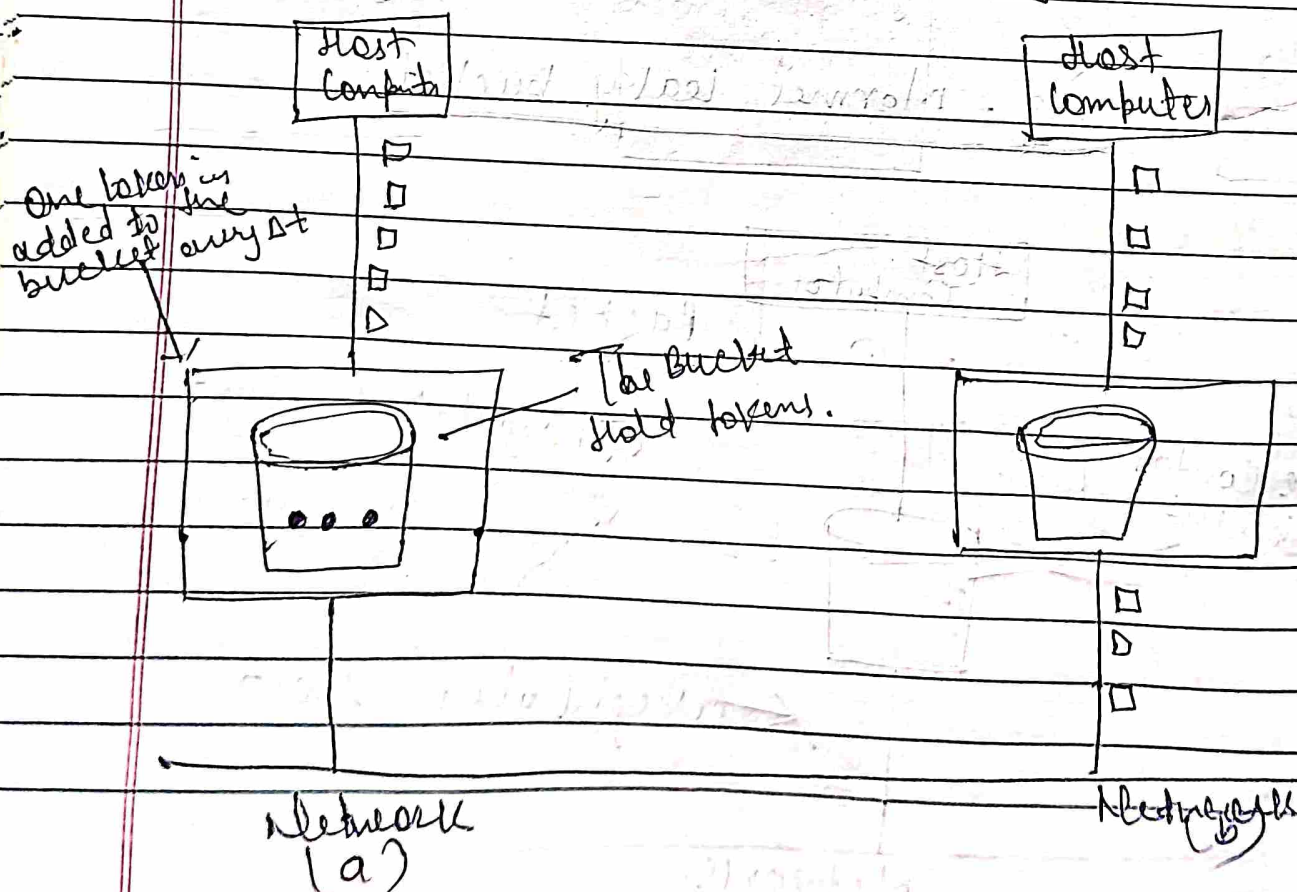 Host
Computer
Host
Computer
One token is
added to the
bucket every Δt
The Bucket
Hold tokens.
Network
(a)
Network
(b)